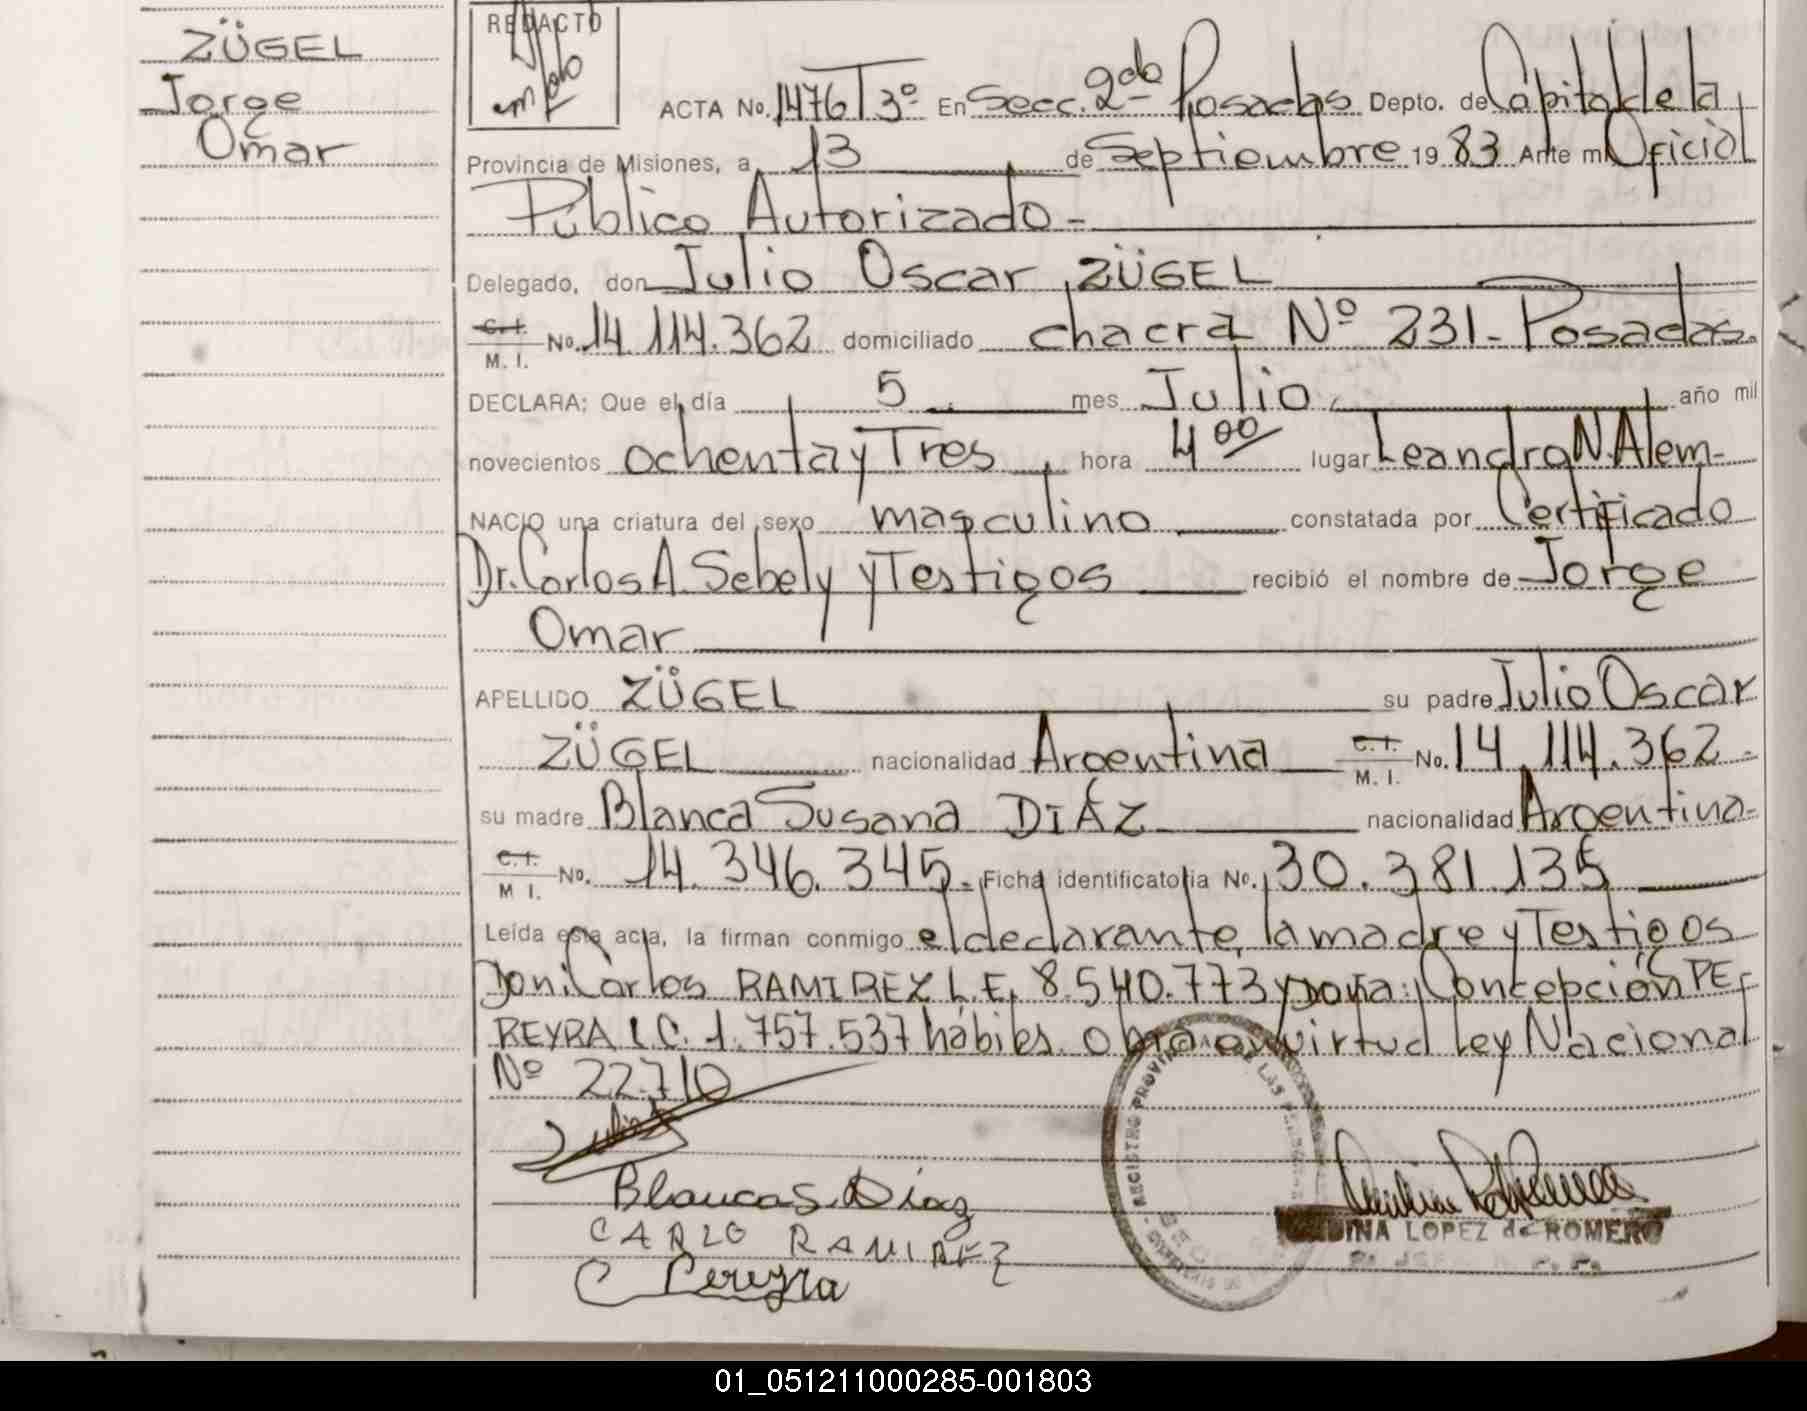 ZÜGEL
Jorge
Omar
REDACTO
ACTA No. 1476 T 3º En Secc. 2da Posadas Depto. de Capital de la
Provincia de Misiones, a 13 de Septiembre 19 83 Ante mi Oficial
Público Autorizado-
Delegado, don Julio Oscar ZÜGEL
C.I. M. I. No. 14.114.362 domiciliado chacra Nº 231- Posadas.
DECLARA: Que el día 5 mes Julio año mil
novecientos ochenta y Tres hora 4 00 lugar Leandro N. Alem-
NACIO una criatura del sexo masculino constatada por Certificado
Dr. Carlos A. Sebely y Testigos recibió el nombre de Jorge
Omar
APELLIDO ZÜGEL su padre Julio Oscar
ZÜGEL nacionalidad Argentina C.I. M. I. No. 14.114.362-
su madre Blanca Susana DIÁZ nacionalidad Argentina-
C.I. M I. No. 14.346.345- Ficha identificatoria No. 30.381.135
Leída esta acta, la firman conmigo el declarante, la madre y Testigos
Don: Carlos RAMIREZ L.E. 8.540.773 y Doña: Concepción PE-
REYRA L C. 1.757.537 hábiles. Obra en virtud Ley Nacional
Nº 22.710
Blanca S. Díaz
CARLO RAMIREZ
C Pereyra
REGISTRO PROVINCIAL DE LAS PERSONAS
LOPEZ de ROMERO
01_051211000285-001803